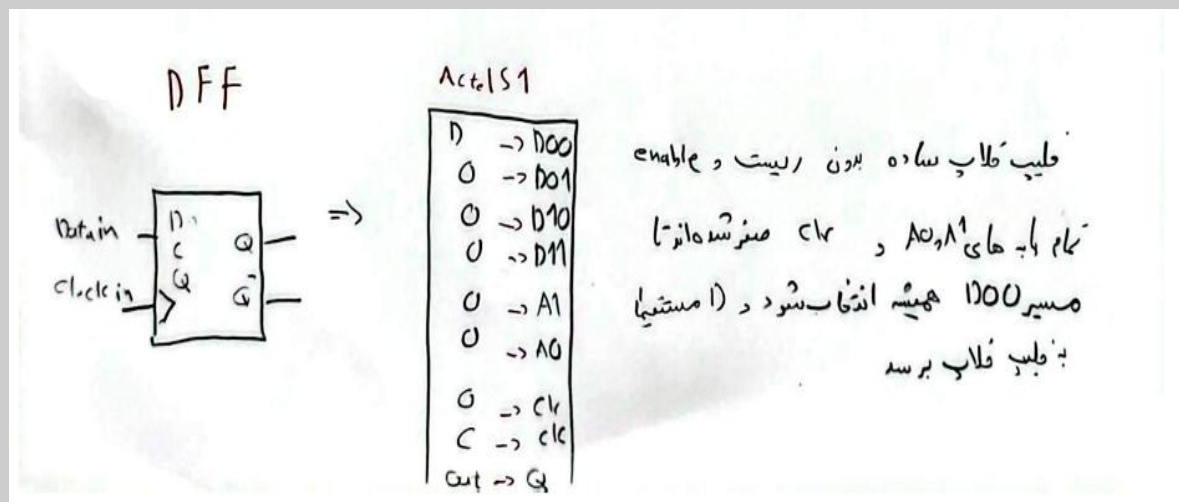 DFF
Data in
Clock in
D
C
Q
Q
Q
=>
Actel S1
D -> D00
0 -> D01
0 -> D10
0 -> D11
0 -> A1
0 -> A0
0 -> Clr
C -> clk
Out -> Q
فلیپ فلاپ ساده بدون ریست و enable
تمام پایه های A0,A1 و Clr صفر شده‌اند تا
مسیر D00 همیشه انتخاب شود و D مستقیما
به فلیپ فلاپ برسد